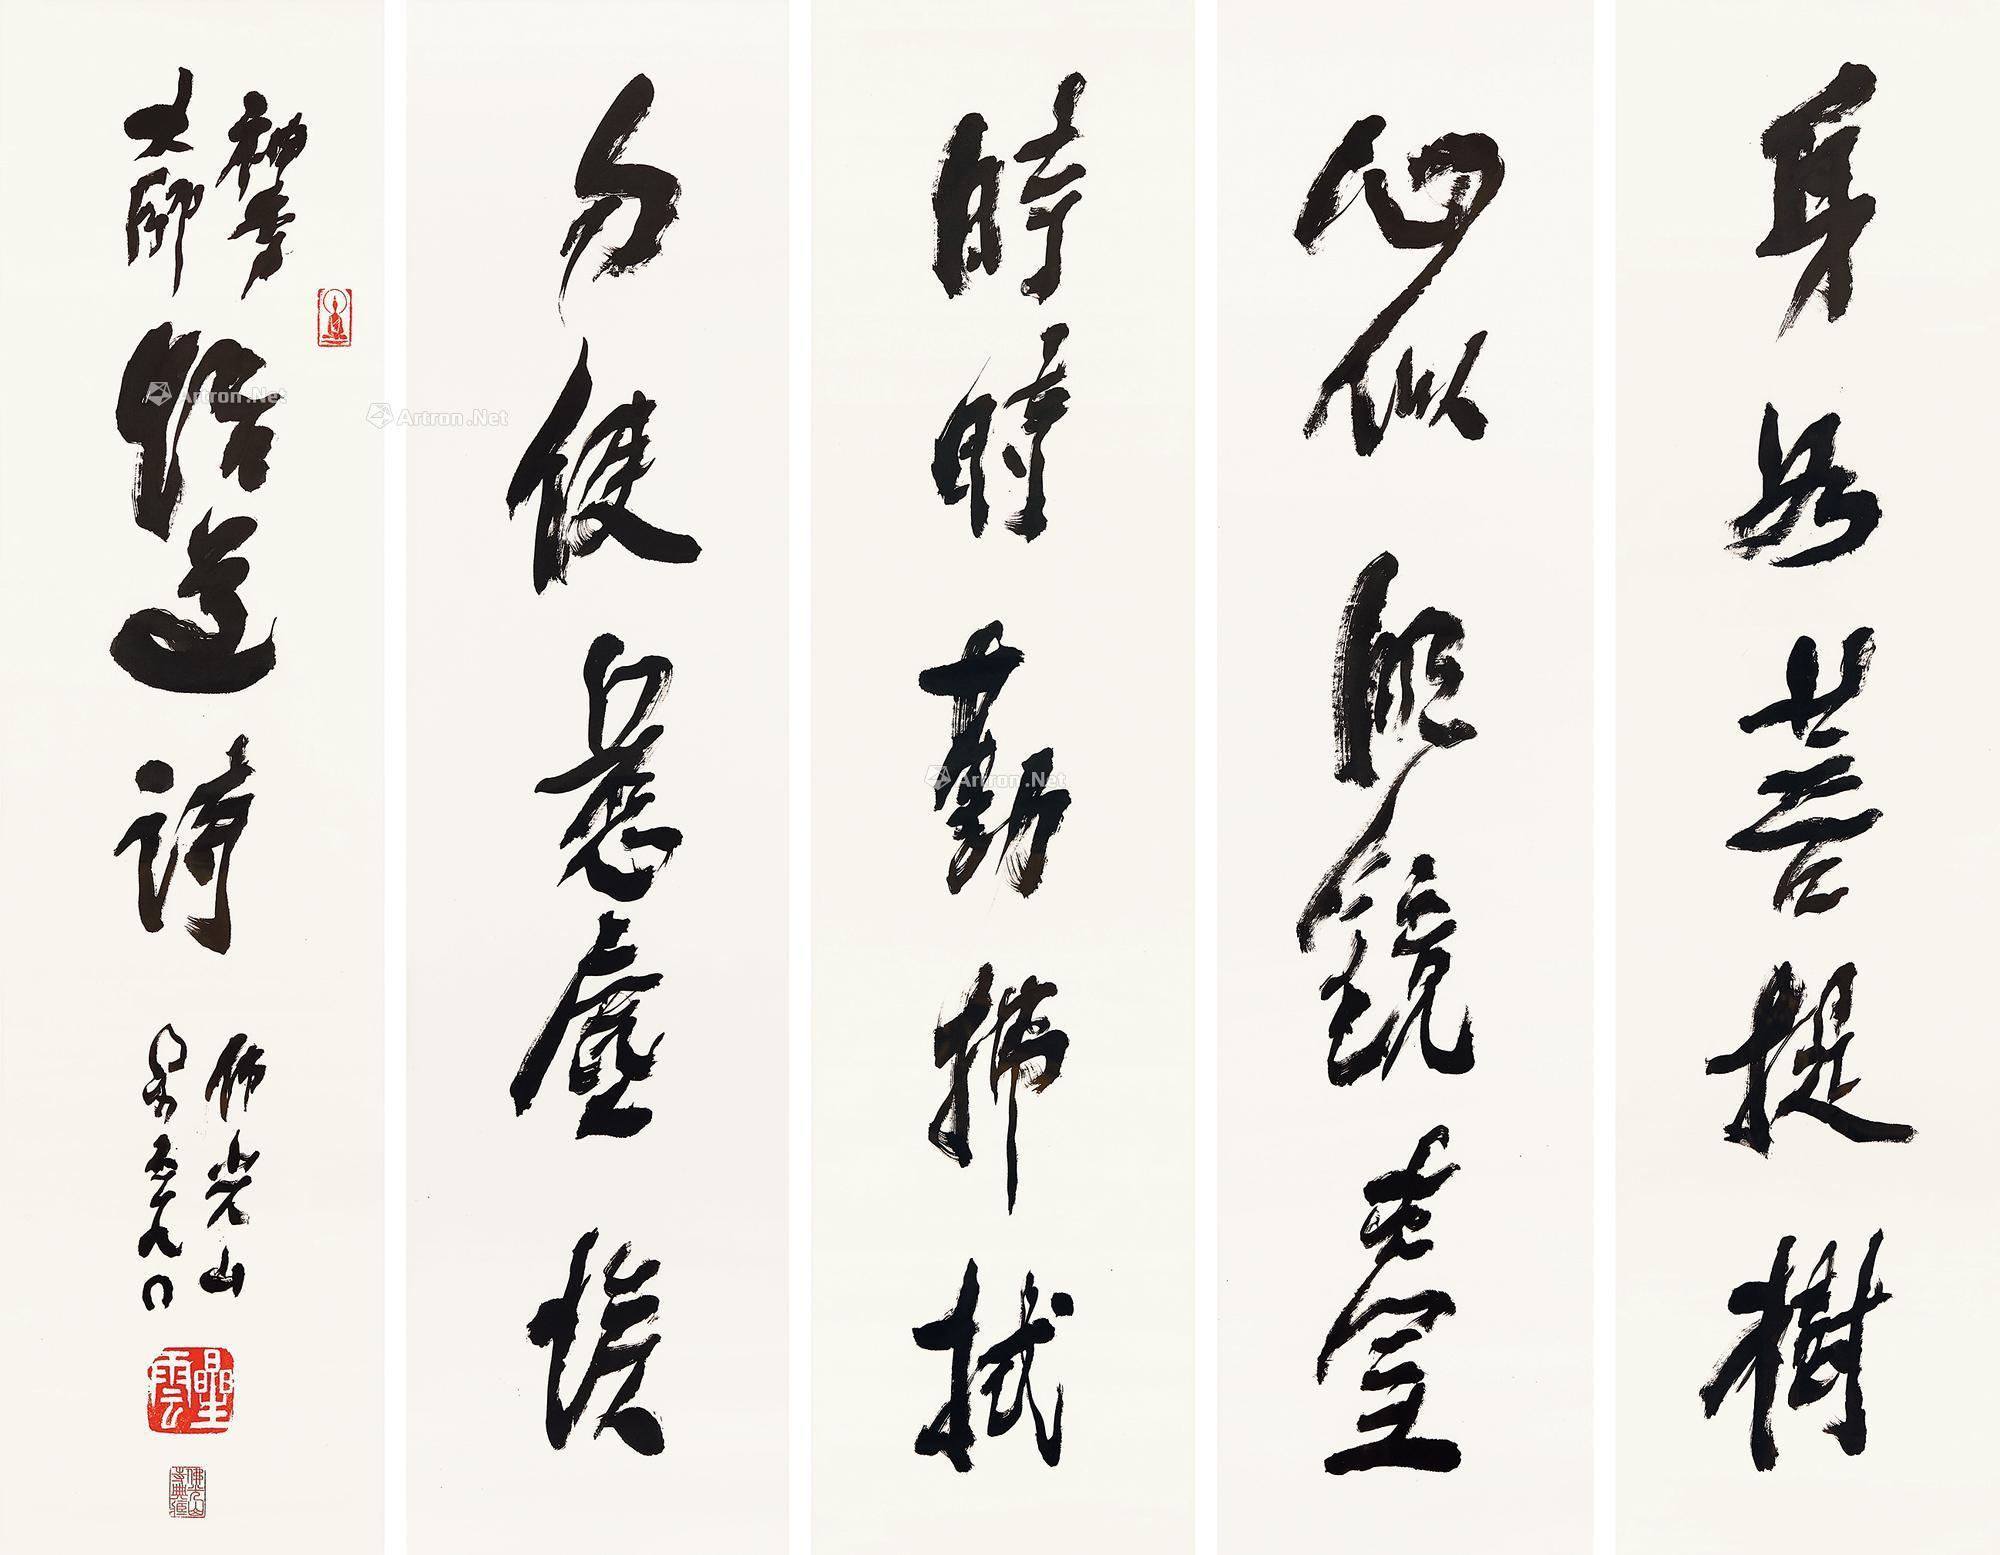 身如菩提樹
心似明鏡臺
時時勤拂拭
勿使惹塵埃
神秀
大師
悟道詩
佛光山
星雲
星雲
佛光山寺典藏
Artron.Net
Artron.Net
Artron.Net